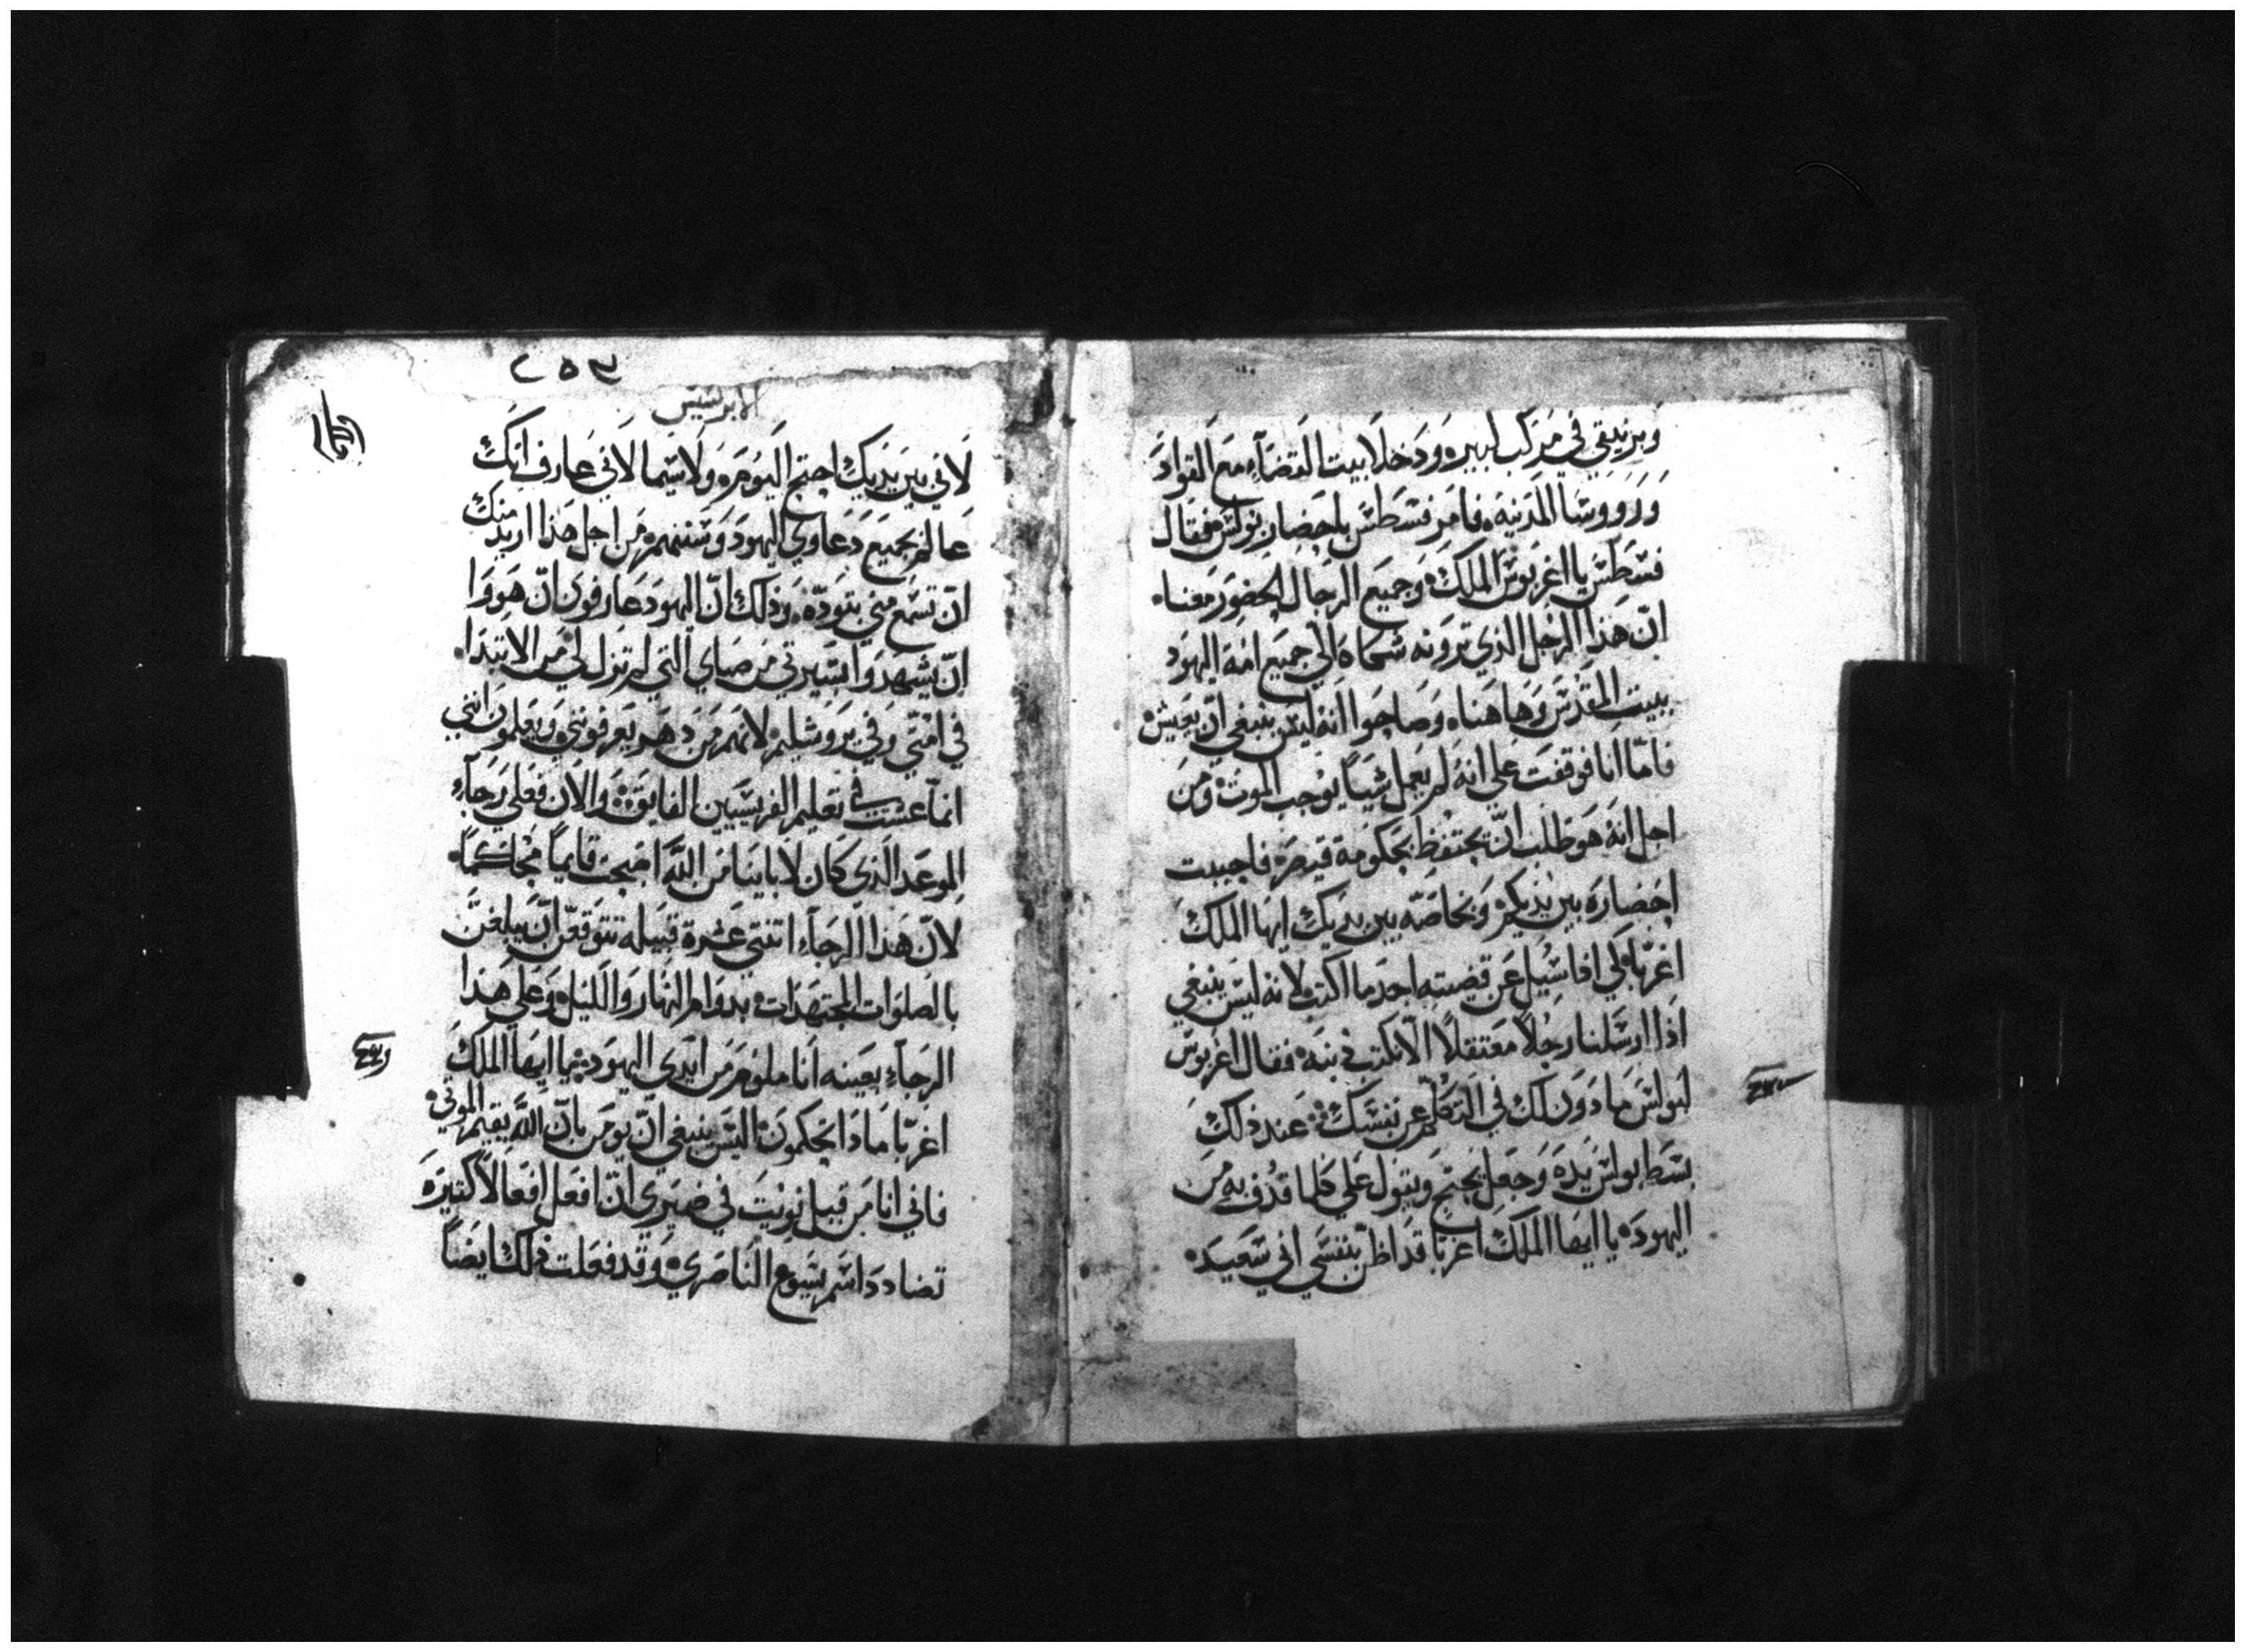 وبرنيقي في مركب لبيره ودخلا بيت القضآء مع القواد
وروٓوسا المدينه فامر فسطس باحضار بولس فقال
فسطس يا اغربوس الملك وجميع الرجال الحضور معنا
ان هذا الرجل الذي ترونه شكاه الي جميع امة اليهود
ببيت المقدس وهاهنا وصاحوا انه ليس ينبغي ان يعيش
فاما انا فوقفت علي انه لم يعمل شيياً يوجب الموت ومن
اجل انه هو طلب ان يحتفظ بحكومة قيصر فاجببت
احضاره بين يديكم وبخاصه بين يديك ايها الملك
اغربا لكي اذا سيل عن قضيته اجد ما اكتب لانه ليس ينبغي
اذا ارسلنا رجلاً معتقلاً الا نكتب ذنبه فقال اغربوس
لبولس مادون لك في التكلم عن نفسك عند ذلك
بسط بولس يده وجعل يحتج ويقول علي كلما قدف به من
اليهود يا ايها الملك اغربا قد اظن بنفسي اني سعيد
٢٥٣
الابركسيس
لاني بين يديك احتج اليوم ولاسيما لاني عارف انك
عالم بجميع دعاوي اليهود وسننهم من اجل هذا اريد منك
ان تسمع مني بتودة وذلك ان اليهود عارفون ان هووا
ان يشهدوا بسيرتي من صباي التي لم تزل لي من الابتدا
في امتي وفي يروشليم لانهم من دهر يعرفونني ويعلمون انني
انما عشت في تعليم الفريسيين الفايق والان فعلي رجآء
الموعد الذي كان لاباينا من الله اصبحت قايماً محاكماً
لان هذا الرجآء اتنتي عشرة قبيله تتوقعن ان يبلغن
بالصلوات المجتهدات بدوام النهار والليل وعلي هذا
الرجآء بعينه انا ملوم من ايدي اليهود يا ايها الملك
اغربا ماذا تحكمون اليس ينبغي ان يومن بان الله يقيم الموتي
فاني انا من قبل نويت في ضميري ان افعل افعالاً كثيره
تضادد اسم يسوع الناصري وقد فعلت ذلك ايضاً